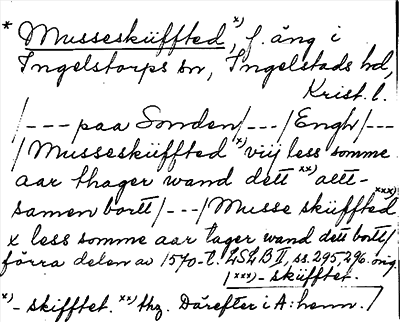 * Mussesküffted x), f. äng i
Ingelstorps sn, Ingelstads hd,
Krist. l.
/--- paa Sonden/---/Engh/---
/Mussesküffted x) vij less somme
aar thager wand dett xx) altt-
samen bortt/---/Musse sküffted xxx)
x less somme aar tager wand dett bortt/
förra delen av 1570-t. LSGB II, ss. 295, 296. orig.
/xxx) - sküfftet.
x) - skifftet. xx) thz. Därefter i A: henn./